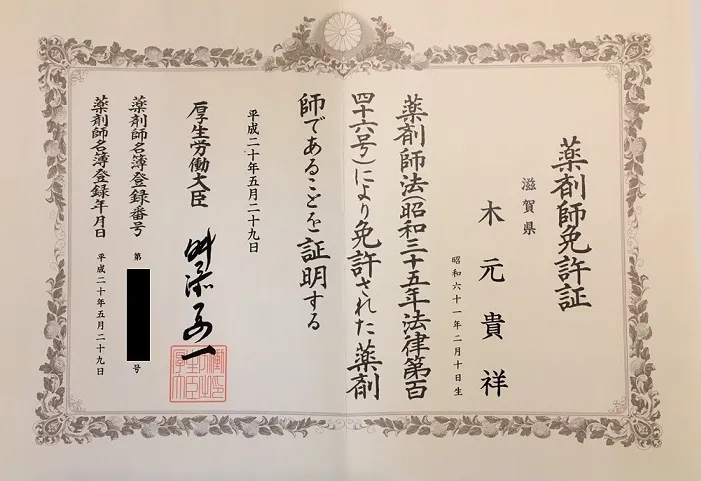 薬剤師免許証
滋賀県
木元貴祥
昭和六十一年二月十日生
薬剤師法(昭和三十五年法律第百
四十六号)により免許された薬剤
師であることを証明する
平成二十年五月二十九日
厚生労働大臣 舛添要一
薬剤師名簿登録番号 第 号
薬剤師名簿登録年月日 平成二十年五月二十九日